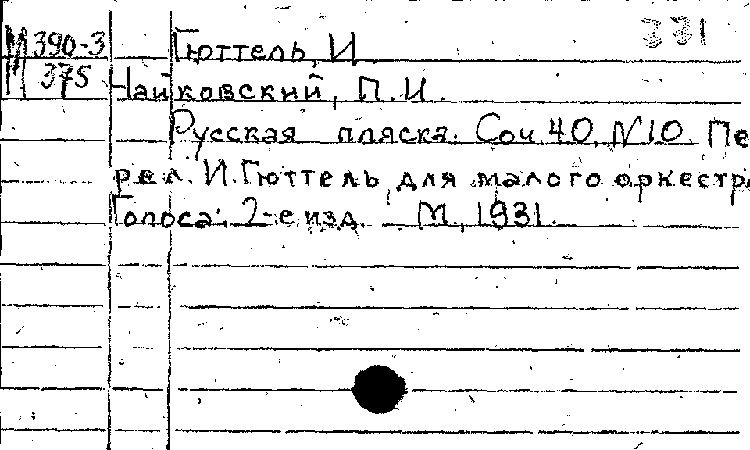 М390-3 Гюттель, И 331
М 375 Чайковский, П. И.
Русская пляска. Соч 40, N10 Пе
рел. И. Гюттель для малого оркестра
Голоса. 2-е изд. М, 1931.